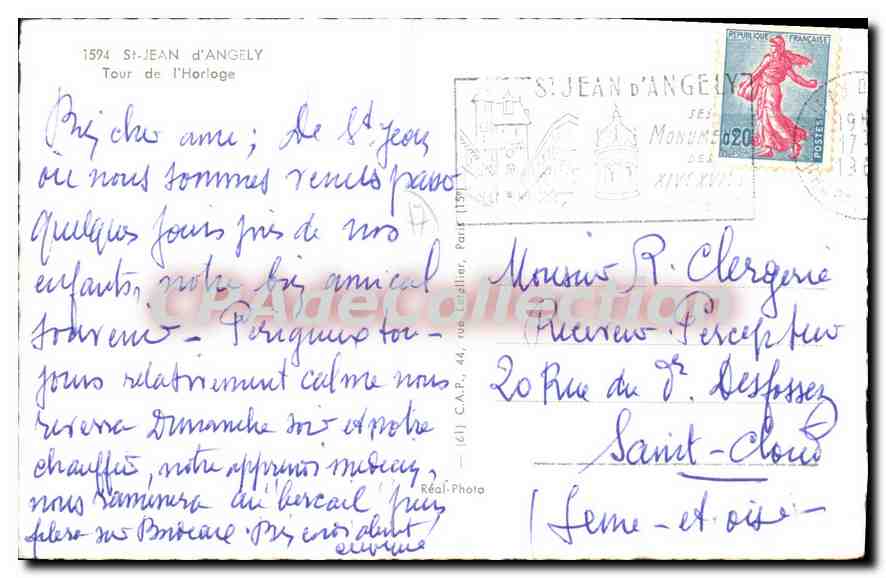 1594 St-JEAN d'ANGELY
Tour de l'Horloge
Bien cher ami; De St Jean
où nous sommes venus passer
quelques jours près de nos
enfants, notre bien amical
souvenir - Périgueux tou-
jours relativement calme nous
reverra Dimanche soir et notre
chauffeur, notre apprenti médecin,
nous ramènera au bercail puis
filera sur Bordeaux. Bien cordialement
REPUBLIQUE FRANÇAISE
0,20
POSTES
St JEAN D'ANGELY
SES
MONUME
DES
XIVe XVIII
17
Monsieur R. Clergerie
Receveur-Percepteur
20 Rue du Dr Desfossez
Saint-Cloud
(Seine-et-Oise-
(61) C.A.P., 44, rue Letellier, Paris (15e)
Réal-Photo
CPAdeCollection